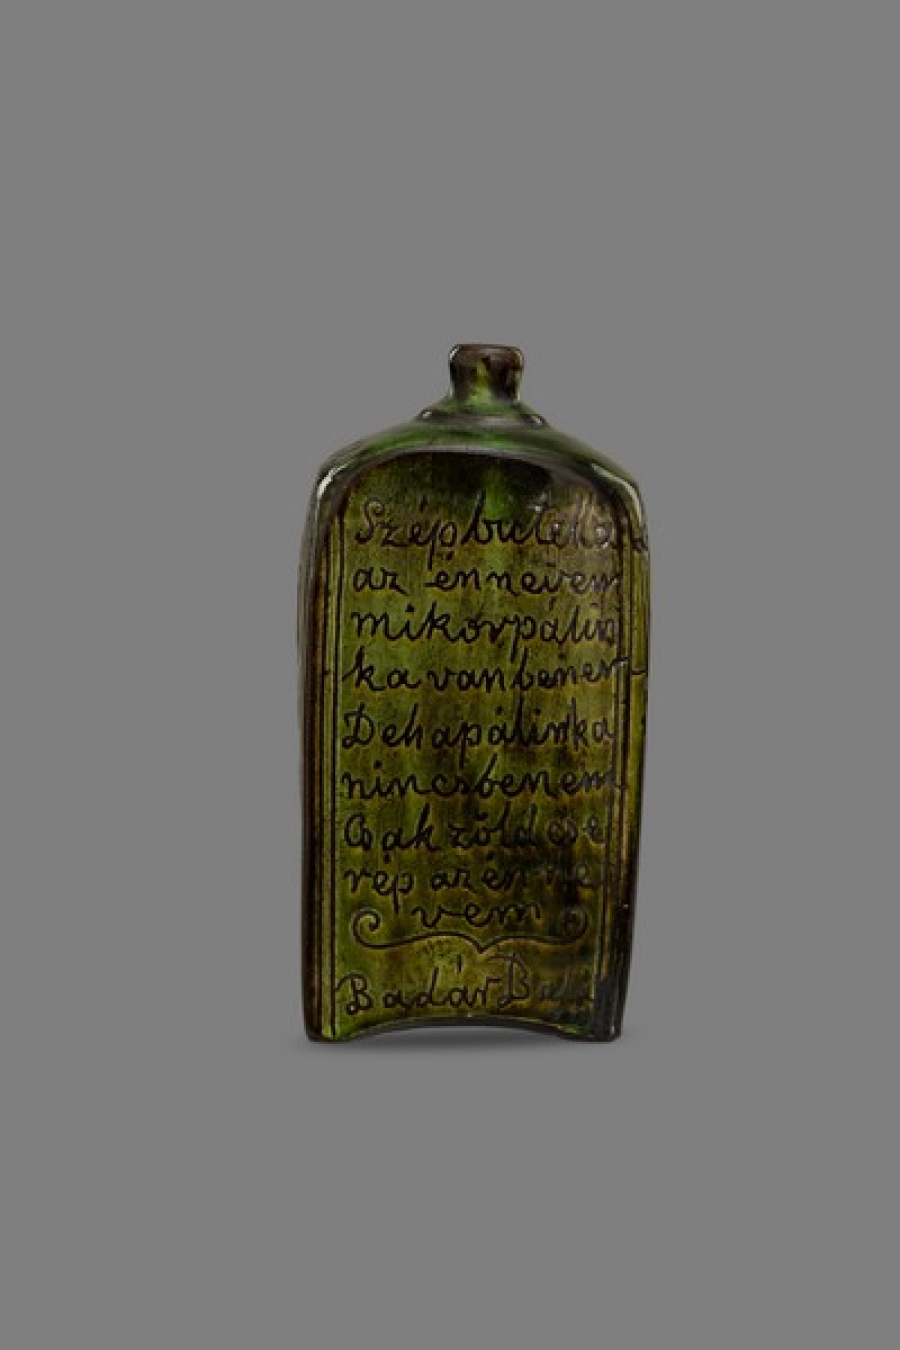 Szép butella
az énneivem
mikorpálin
ka vanbenem
Dehapálinka
nincsbenem
Csak zöld cse
rép az én ne
vem
Badár